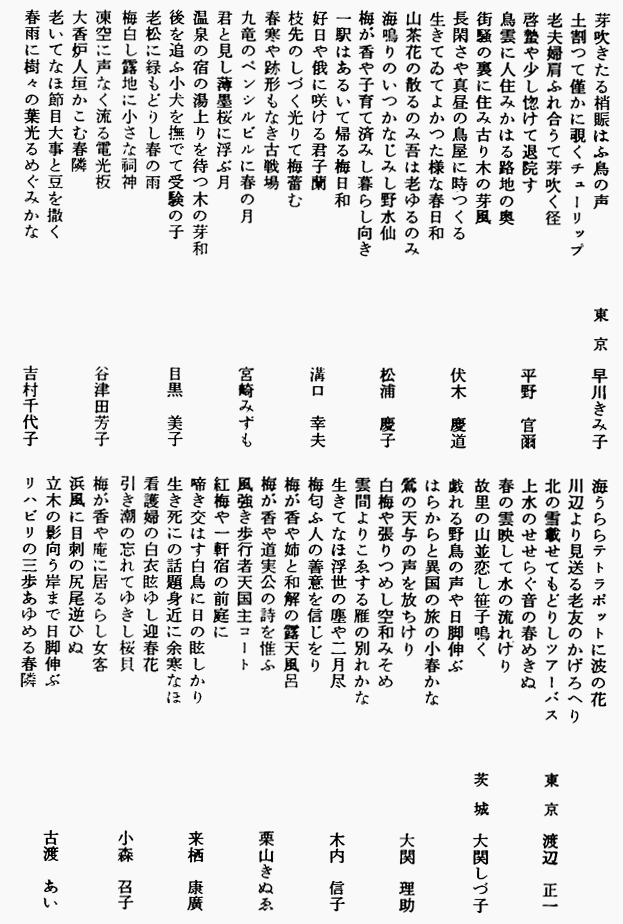 芽吹きたる梢賑はふ鳥の声
土割つて僅かに覗くチューリップ
老夫婦肩ふれ合うて芽吹く径
東京 早川きみ子
啓蟄や少し惚けて退院す
鳥雲に人住みかはる路地の奥
街騒の裏に住み古り木の芽風
平野 官爾
長閑さや真昼の鳥屋に時つくる
生きてゐてよかつた様な春日和
山茶花の散るのみ吾は老ゆるのみ
伏木 慶道
海鳴りのいつかなじみし野水仙
梅が香や子育て済みし暮らし向き
一駅はあるいて帰る梅日和
松浦 慶子
好日や俄に咲ける君子蘭
枝先のしづく光りて梅蕾む
春寒や跡形もなき古戦場
溝口 幸夫
九竜のペンシルビルに春の月
君と見し薄墨桜に浮ぶ月
温泉の宿の湯上りを待つ木の芽和
宮崎みずも
後を追ふ小犬を撫でて受験の子
老松に緑もどりし春の雨
梅白し露地に小さな祠神
目黒 美子
凍空に声なく流る電光板
大香炉人垣かこむ春隣
老いてなほ節目大事と豆を撒く
谷津田芳子
春雨に樹々の葉光るめぐみかな
吉村千代子
海うららテトラポットに波の花
川辺より見送る老友のかげろへり
北の雪載せてもどりしツアーバス
東京 渡辺 正一
上水のせせらぐ音の春めきぬ
春の雲映して水の流れけり
故里の山並恋し笹子鳴く
茨城 大関しづ子
戯れる野鳥の声や日脚伸ぶ
はらからと異国の旅の小春かな
鶯の天与の声を放ちけり
大関 理助
白梅や張りつめし空和みそめ
雲間よりこゑする雁の別れかな
生きてなほ浮世の塵や二月尽
木内 信子
梅匂ふ人の善意を信じをり
梅が香や姉と和解の露天風呂
梅が香や道実公の詩を惟ふ
栗山きぬゑ
風強き歩行者天国主コート
紅梅や一軒宿の前庭に
啼き交はす白鳥に日の眩しかり
来栖 康廣
生き死にの話題身近に余寒なほ
看護婦の白衣眩ゆし迎春花
引き潮の忘れてゆきし桜貝
小森 召子
梅が香や庵に居るらし女客
浜風に目刺の尻尾逆ひぬ
立木の影向う岸まで日脚伸ぶ
古渡 あい
リハビリの三歩あゆめる春隣